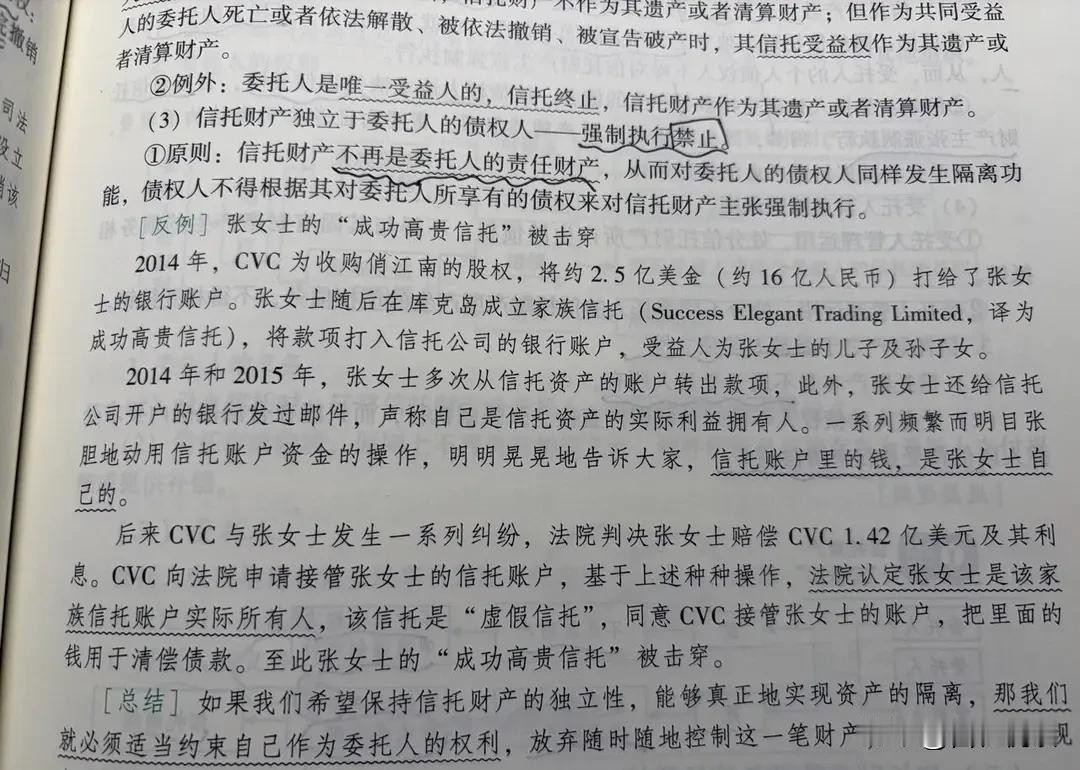 信托财产不作为其遗产或者清算财产；但作为共同受益
人的委托人死亡或者依法解散、被依法撤销、被宣告破产时，其信托受益权作为其遗产或
者清算财产。
②例外：委托人是唯一受益人的，信托终止，信托财产作为其遗产或者清算财产。
（3）信托财产独立于委托人的债权人——强制执行禁止。
①原则：信托财产不再是委托人的责任财产，从而对委托人的债权人同样发生隔离功
能，债权人不得根据其对委托人所享有的债权来对信托财产主张强制执行。
［反例］张女士的“成功高贵信托”被击穿
2014年，CVC为收购俏江南的股权，将约2.5亿美金（约16亿人民币）打给了张女
士的银行账户。张女士随后在库克岛成立家族信托（Success Elegant Trading Limited，译为
成功高贵信托），将款项打入信托公司的银行账户，受益人为张女士的儿子及孙子女。
2014年和2015年，张女士多次从信托资产的账户转出款项，此外，张女士还给信托
公司开户的银行发过邮件，声称自己是信托资产的实际利益拥有人。一系列频繁而明目张
胆地动用信托账户资金的操作，明明晃晃地告诉大家，信托账户里的钱，是张女士自
己的。
后来CVC与张女士发生一系列纠纷，法院判决张女士赔偿CVC 1.42亿美元及其利
息。CVC向法院申请接管张女士的信托账户，基于上述种种操作，法院认定张女士是该家
族信托账户实际所有人，该信托是“虚假信托”，同意CVC接管张女士的账户，把里面的
钱用于清偿债款。至此张女士的“成功高贵信托”被击穿。
［总结］如果我们希望保持信托财产的独立性，能够真正地实现资产的隔离，那我们
就必须适当约束自己作为委托人的权利，放弃随时随地控制这一笔财产
撤销
司法
设立
当该
归